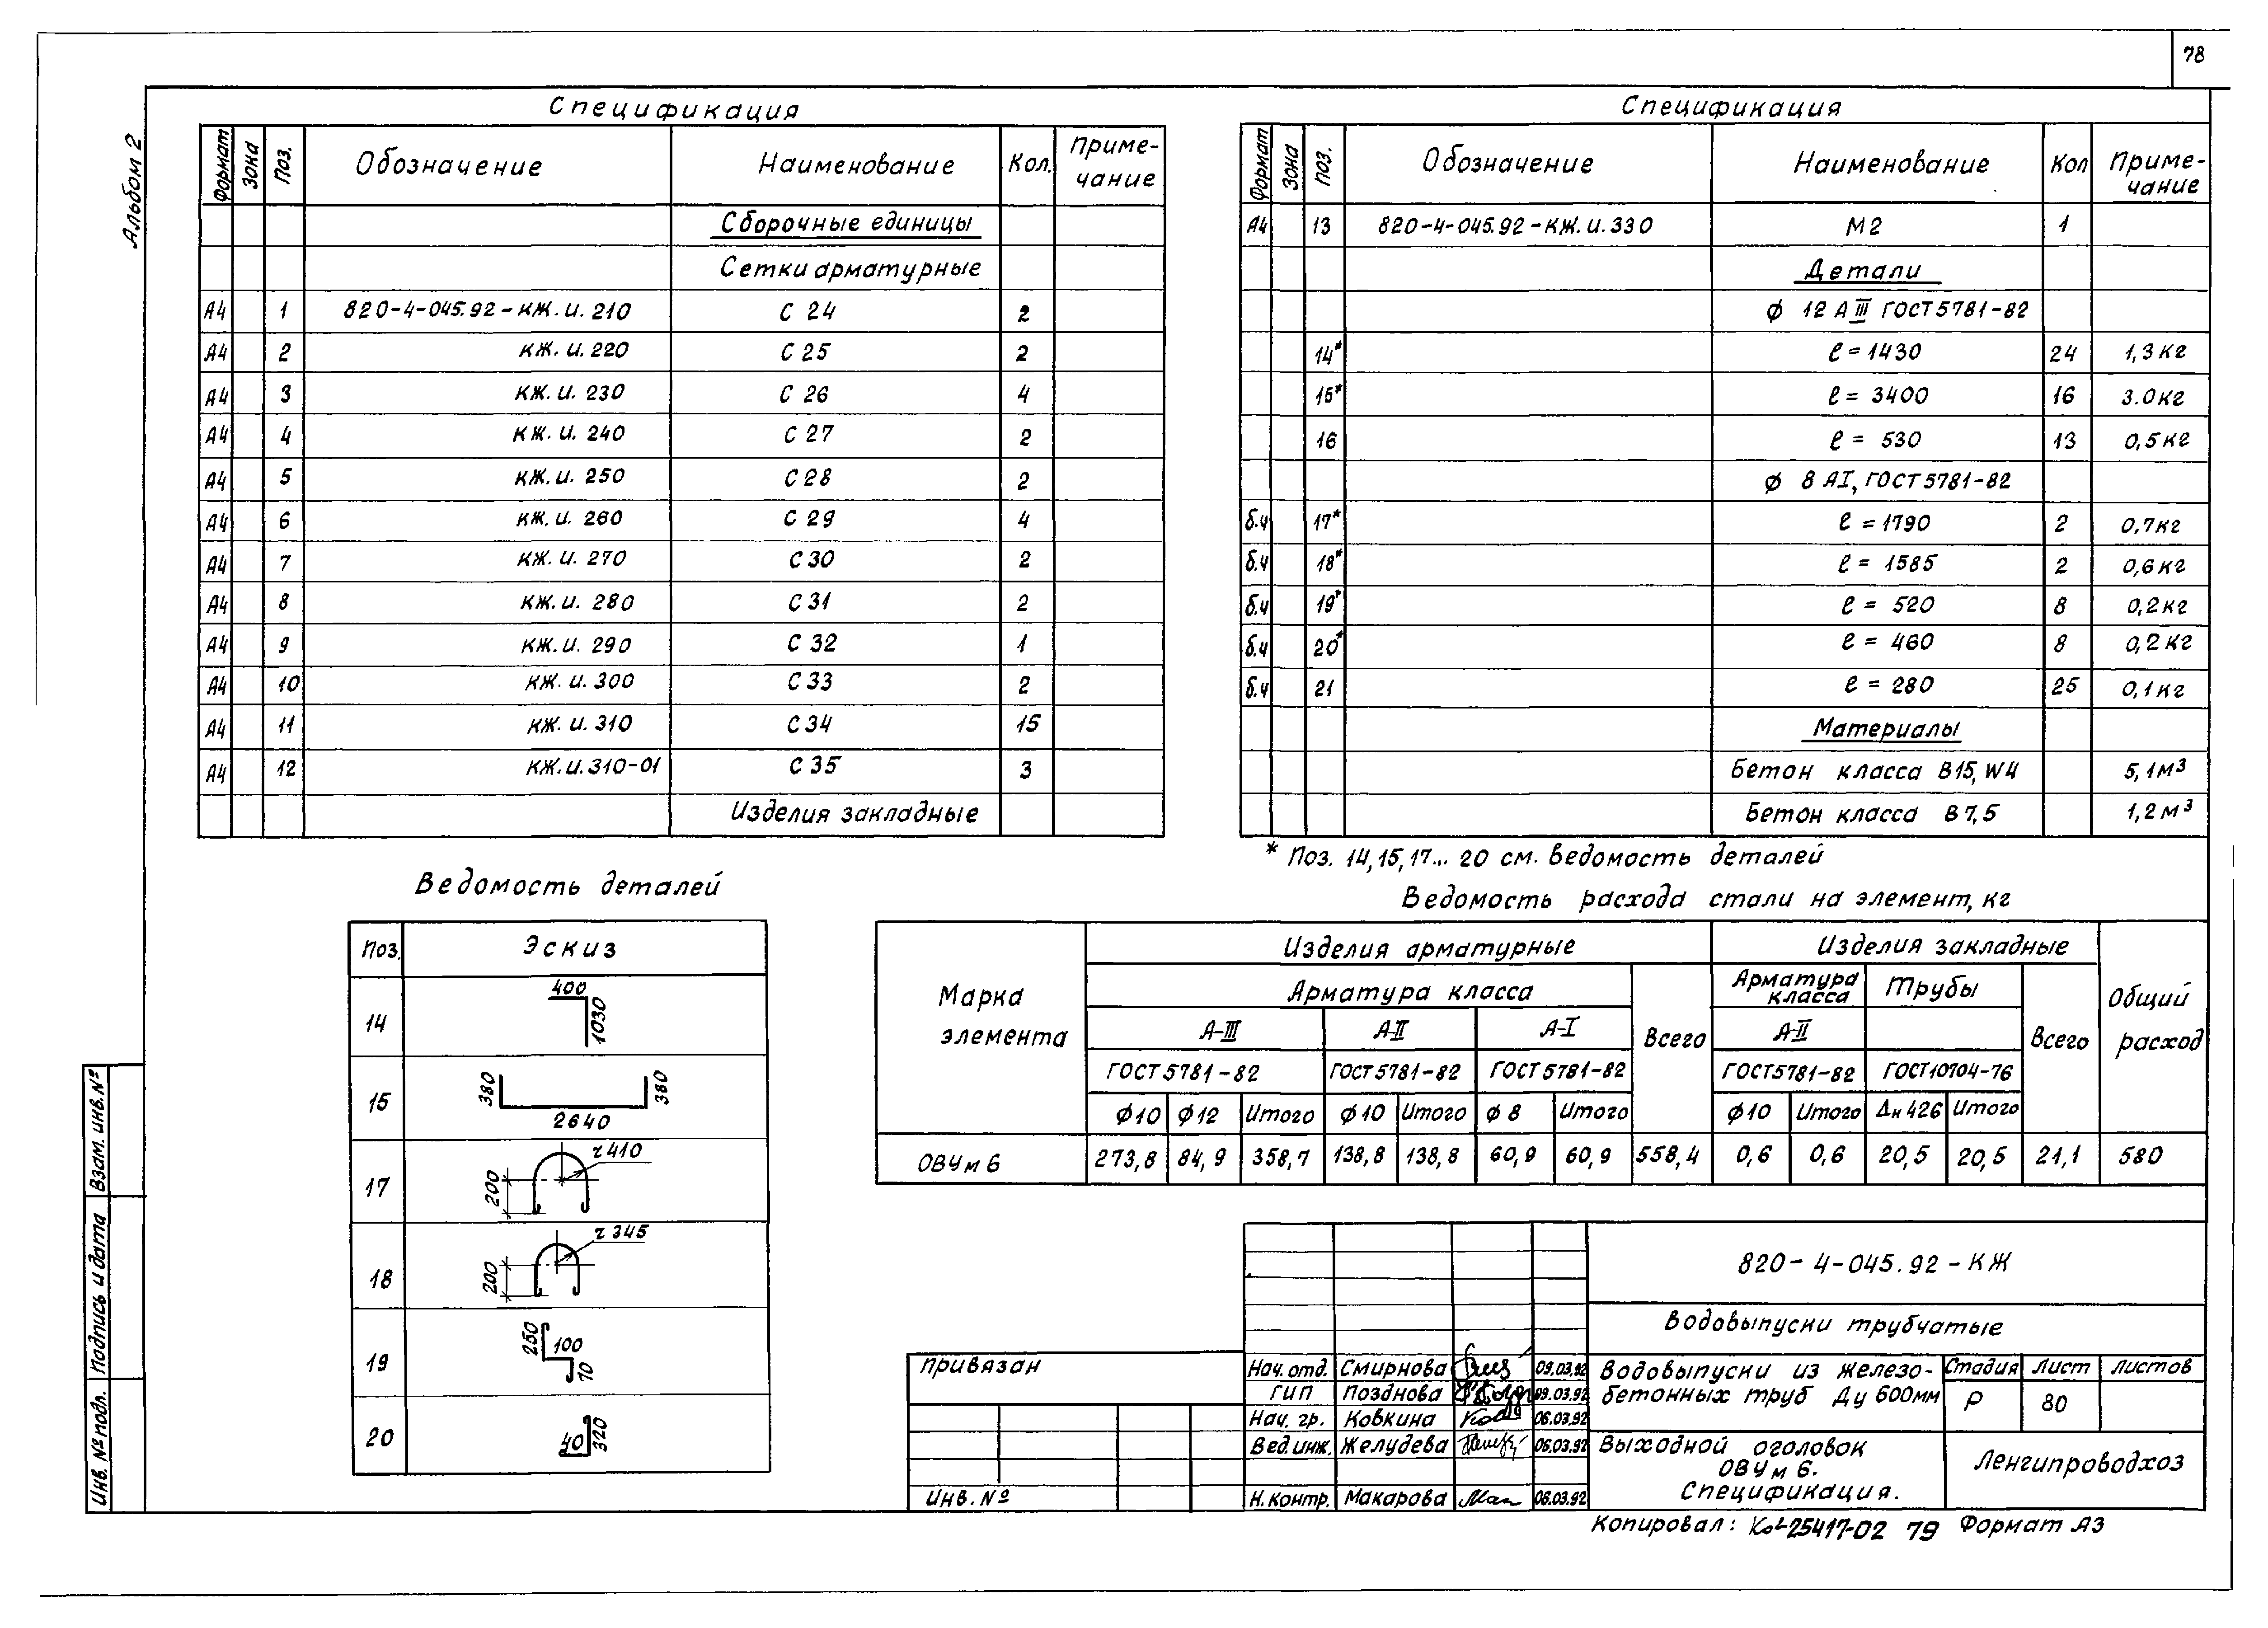 78
Альбом 2
Спецификация
Формат Зона Поз. Обозначение Наименование Кол. Приме-
чание
Сборочные единицы
Сетки арматурные
А4 1 820-4-045.92-КЖ.И.210 С 24 2
А4 2 КЖ.И.220 С 25 2
А4 3 КЖ.И.230 С 26 4
А4 4 КЖ.И.240 С 27 2
А4 5 КЖ.И.250 С 28 2
А4 6 КЖ.И.260 С 29 4
А4 7 КЖ.И.270 С 30 2
А4 8 КЖ.И.280 С 31 2
А4 9 КЖ.И.290 С 32 1
А4 10 КЖ.И.300 С 33 2
А4 11 КЖ.И.310 С 34 15
А4 12 КЖ.И.310-01 С 35 3
Изделия закладные
Спецификация
Формат Зона Поз. Обозначение Наименование Кол Приме-
чание
А4 13 820-4-045.92-КЖ.И.330 М2 1
Детали
ϕ 12 АIII ГОСТ 5781-82
14* ℓ = 1430 24 1,3 кг
15* ℓ = 3400 16 3.0 кг
16 ℓ = 530 13 0,5 кг
ϕ 8 АI, ГОСТ 5781-82
б.ч 17* ℓ = 1790 2 0,7 кг
б.ч 18* ℓ = 1585 2 0,6 кг
б.ч 19* ℓ = 520 8 0,2 кг
б.ч 20* ℓ = 460 8 0,2 кг
б.ч 21 ℓ = 280 25 0,1 кг
Материалы
Бетон класса В15, W4 5,1 м³
Бетон класса В 7,5 1,2 м³
* Поз. 14, 15, 17... 20 см. ведомость деталей
Ведомость деталей
Поз. Эскиз
14 400 1030
15 380 2640 380
17 200 r 410
18 200 r 345
19 250 100 70
20 40 320
Ведомость расхода стали на элемент, кг
Марка
элемента
Изделия арматурные Изделия закладные Общий
расход
Арматура класса Всего Арматура
класса Трубы Всего
А-III А-II А-I А-II
ГОСТ 5781-82 ГОСТ 5781-82 ГОСТ 5781-82 ГОСТ 5781-82 ГОСТ 10704-76
ϕ10 ϕ12 Итого ϕ10 Итого ϕ8 Итого ϕ10 Итого Дн 426 Итого
ОВУм 6 273,8 84,9 358,7 138,8 138,8 60,9 60,9 558,4 0,6 0,6 20,5 20,5 21,1 580
820-4-045.92-КЖ
Водовыпуски трубчатые
Привязан
Инв. №
Нач. отд. Смирнова 09.03.92
ГИП Позднова 09.03.92
Нач. гр. Ковкина 06.03.92
Вед.инж. Желудева 06.03.92
Н.контр. Макарова 06.03.92
Водовыпуски из железо-
бетонных труб Ду 600мм
Стадия Лист Листов
Р 80
Выходной оголовок
ОВУм 6.
Спецификация.
Ленгипроводхоз
Инв. № подл. Подпись и дата Взам. инв. №
Копировал: 25417-02 79 Формат А3